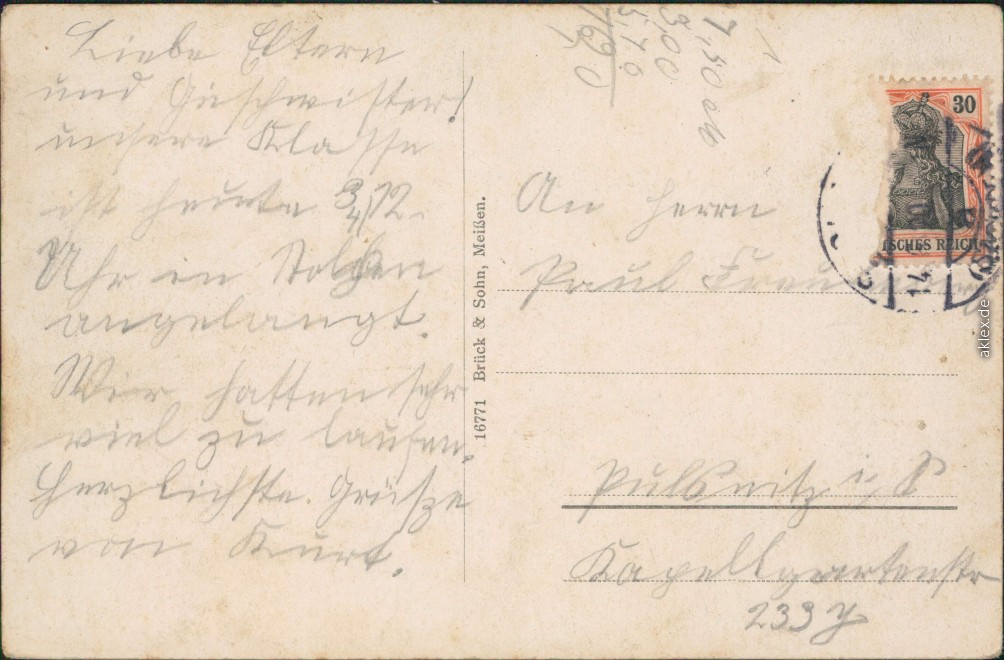 Liebe Eltern
und Geschwister!
unsere Klasse
ist heute 3/4 12
Uhr in Stolpen
angelangt.
Wir hatten sehr
viel zu laufen.
Herzlichste Grüße
von Kurt.
16771 Brück & Sohn, Meißen.
7,50
3,00
5,40
An Herrn
Paul
Pulsnitz i. S
Kapellgartenstr
233
30
TSCHES REICH
14
aklex.de